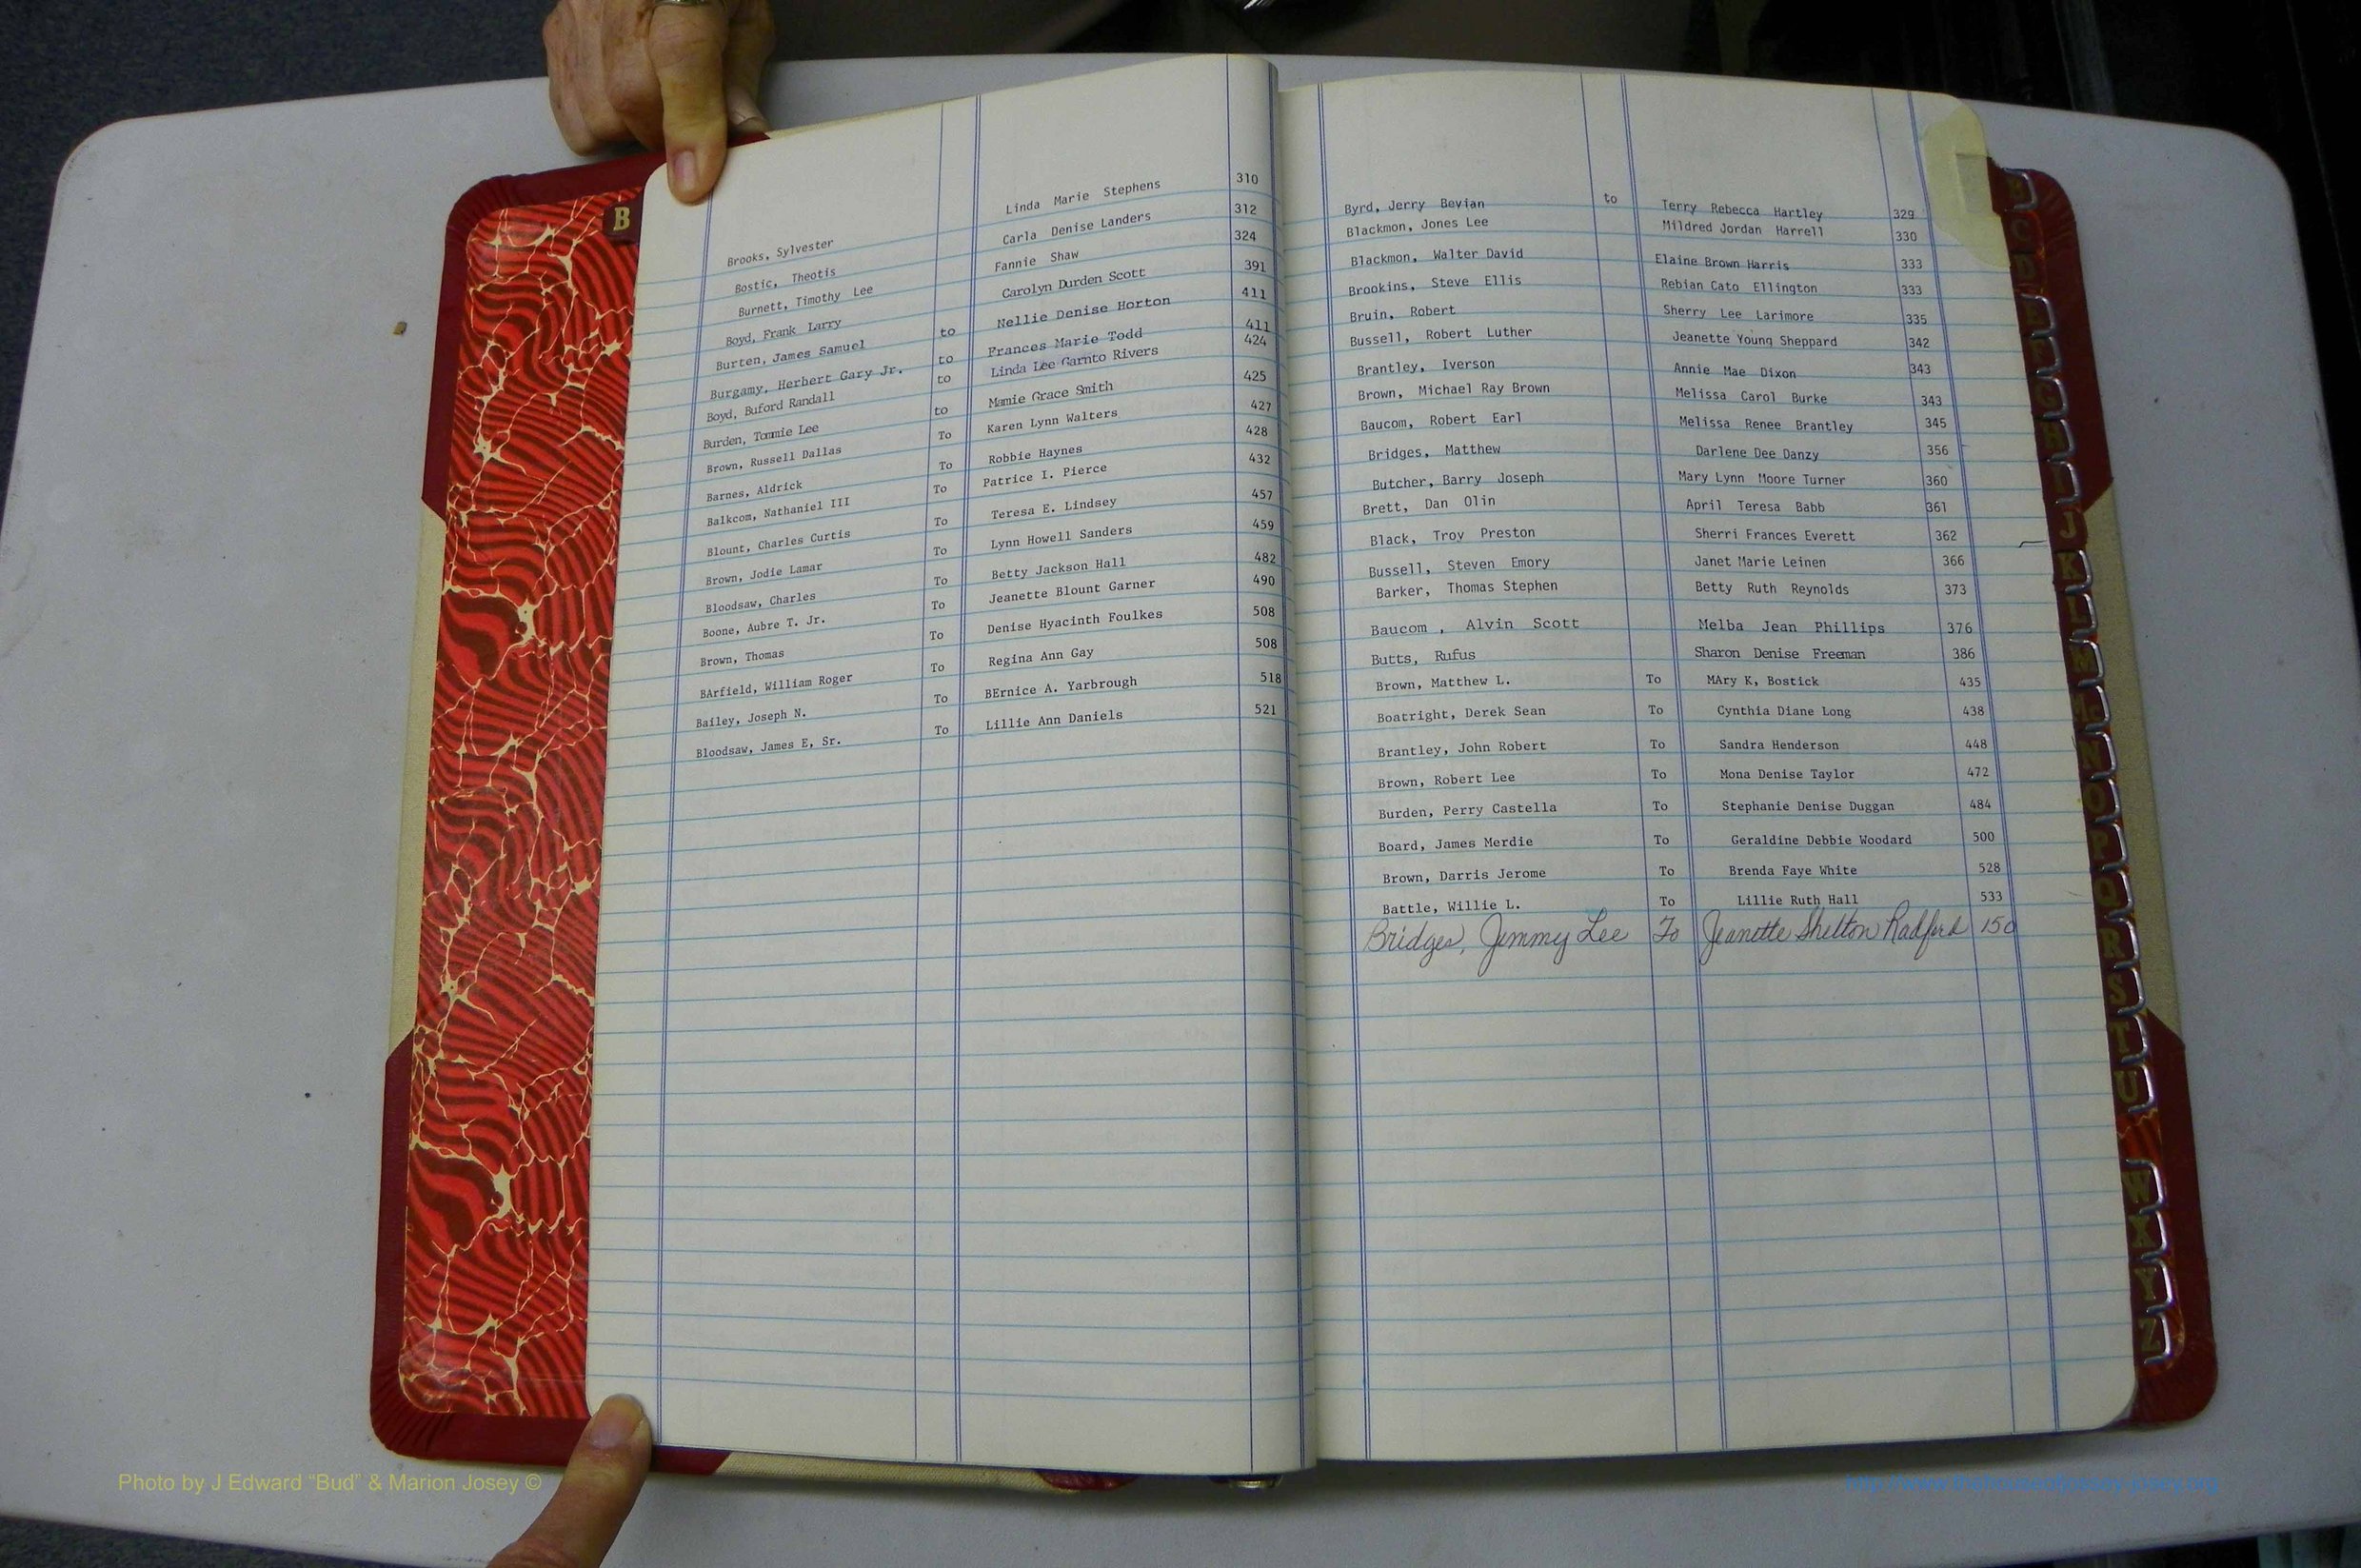 B
Brooks, Sylvester Linda Marie Stephens 310
Bostic, Theotis Carla Denise Landers 312
Burnett, Timothy Lee Fannie Shaw 324
Boyd, Frank Larry Carolyn Durden Scott 391
Burten, James Samuel to Nellie Denise Horton 411
Burgamy, Herbert Gary Jr. to Frances Marie Todd 411
Boyd, Buford Randall to Linda Lee Garnto Rivers 424
Burden, Tommie Lee to Mamie Grace Smith 425
Brown, Russell Dallas To Karen Lynn Walters 427
Barnes, Aldrick To Robbie Haynes 428
Balkcom, Nathaniel III To Patrice I. Pierce 432
Blount, Charles Curtis To Teresa E. Lindsey 457
Brown, Jodie Lamar To Lynn Howell Sanders 459
Bloodsaw, Charles To Betty Jackson Hall 482
Boone, Aubre T. Jr. To Jeanette Blount Garner 490
Brown, Thomas To Denise Hyacinth Foulkes 508
BArfield, William Roger To Regina Ann Gay 508
Bailey, Joseph N. To BErnice A. Yarbrough 518
Bloodsaw, James E, Sr. To Lillie Ann Daniels 521
Byrd, Jerry Bevian to Terry Rebecca Hartley 329
Blackmon, Jones Lee Mildred Jordan Harrell 330
Blackmon, Walter David Elaine Brown Harris 333
Brookins, Steve Ellis Rebian Cato Ellington 333
Bruin, Robert Sherry Lee Larimore 335
Bussell, Robert Luther Jeanette Young Sheppard 342
Brantley, Iverson Annie Mae Dixon 343
Brown, Michael Ray Brown Melissa Carol Burke 343
Baucom, Robert Earl Melissa Renee Brantley 345
Bridges, Matthew Darlene Dee Danzy 356
Butcher, Barry Joseph Mary Lynn Moore Turner 360
Brett, Dan Olin April Teresa Babb 361
Black, Troy Preston Sherri Frances Everett 362
Bussell, Steven Emory Janet Marie Leinen 366
Barker, Thomas Stephen Betty Ruth Reynolds 373
Baucom , Alvin Scott Melba Jean Phillips 376
Butts, Rufus Sharon Denise Freeman 386
Brown, Matthew L. To MAry K, Bostick 435
Boatright, Derek Sean To Cynthia Diane Long 438
Brantley, John Robert To Sandra Henderson 448
Brown, Robert Lee To Mona Denise Taylor 472
Burden, Perry Castella To Stephanie Denise Duggan 484
Board, James Merdie To Geraldine Debbie Woodard 500
Brown, Darris Jerome To Brenda Faye White 528
Battle, Willie L. To Lillie Ruth Hall 533
Bridges, Jimmy Lee To Jeanette Shelton Radford 150
C
D
G
H
I
J
K
L
M
Mc
N
O
P
Q
R
S
T
U
W
X
Y
Z
Photo by J Edward “Bud” & Marion Josey ©
http://www.thehouseofjosey-josey.org